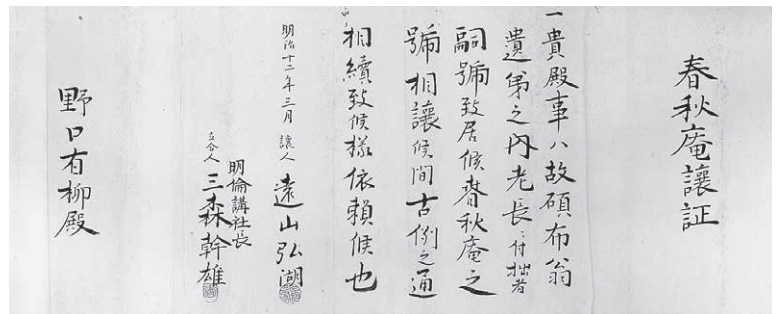 春秋庵讓証
一貴殿事ハ故碩布翁
遺弟之内老長ニ付拙者
嗣號致居候春秋庵之
號相讓候間古例之通
相續致候樣依頼候也
明治十二年三月 讓人 遠山弘湖
明倫講社長
立合人 三森幹雄
野口有柳殿